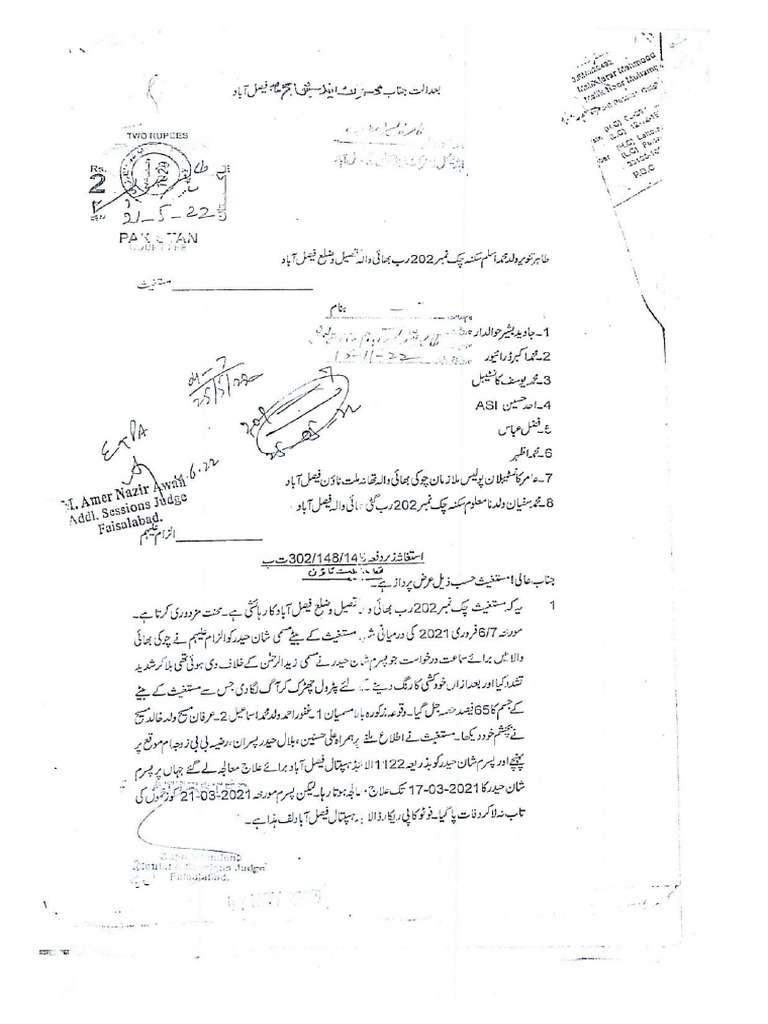 بعدالت جناب ڈسٹرکٹ اینڈ سیشن جج صاحب فیصل آباد
Malik Noor Muhammad
P.B.C
TWO RUPEES
Rs.
2
21-5-22
PAKISTAN
COURT FEE
طاہر تنویر ولد محمد اسلم سکنہ چک نمبر 202 رب بھائی والہ تحصیل و ضلع فیصل آباد
مستغیث
بنام
1۔ جاوید بشیر حوالدار
2۔ محمد اکبر ڈرائیور
3۔ محمد یوسف کانسٹیبل
4۔ احمد حسین ASI
5۔ فضل عباس
6۔ محمد اظہر
7۔ عامر کانسٹیبلان پولیس ملازمان چوکی بھائی والہ تھانہ ملت ٹاؤن فیصل آباد
8۔ محمد سفیان ولد نامعلوم سکنہ چک نمبر 202 رب گٹی بھائی والہ فیصل آباد
25/5/22
25-05-22
6.22
M. Amer Nazir Awan
Addl. Sessions Judge
Faisalabad.
الزام علیہم
استغاثہ زیر دفعہ 302/148/149 ت پ
تھانہ ملت ٹاؤن
جناب عالی! مستغیث حسب ذیل عرض پرداز ہے۔
1 یہ کہ مستغیث چک نمبر 202 رب بھائی والہ تحصیل و ضلع فیصل آباد کا رہائشی ہے۔ محنت مزدوری کرتا ہے۔
مورخہ 6/7 فروری 2021 کی درمیانی شب مستغیث کے بیٹے مسمی شان حیدر کو الزام علیہم نے چوکی بھائی
والا میں برائے سماعت درخواست جو پسرم شان حیدر نے مسمی زید الرحمٰن کے خلاف دی ہوئی تھی بلا کر شدید
تشدد کیا اور بعد ازاں خودکشی کا رنگ دینے کے لئے پٹرول چھڑک کر آگ لگا دی جس سے مستغیث کے بیٹے
کے جسم کا 65 فیصد حصہ جل گیا۔ وقوعہ مذکورہ بالا مسمیان 1۔ غفور احمد ولد محمد اسماعیل 2۔ عرفان مسیح ولد خالد مسیح
نے بچشم خود دیکھا۔ مستغیث نے اطلاع ملنے پر ہمراہ علی حسنین، بلال حیدر پسران، رضیہ بی بی زوجہ ام موقع پر
پہنچے اور پسرم شان حیدر کو بذریعہ 1122 الائیڈ ہسپتال فیصل آباد برائے علاج معالجہ لے گئے جہاں پر پسرم
شان حیدر کا 17-03-2021 تک علاج معالجہ ہوتا رہا۔ لیکن پسرم مورخہ 21-03-2021 کو زخموں کی
تاب نہ لا کر وفات پا گیا۔ فوٹو کاپی ریکارڈ الائیڈ ہسپتال فیصل آباد لف ہذا ہے۔
Superintendent
Sessions Judge
Faisalabad.